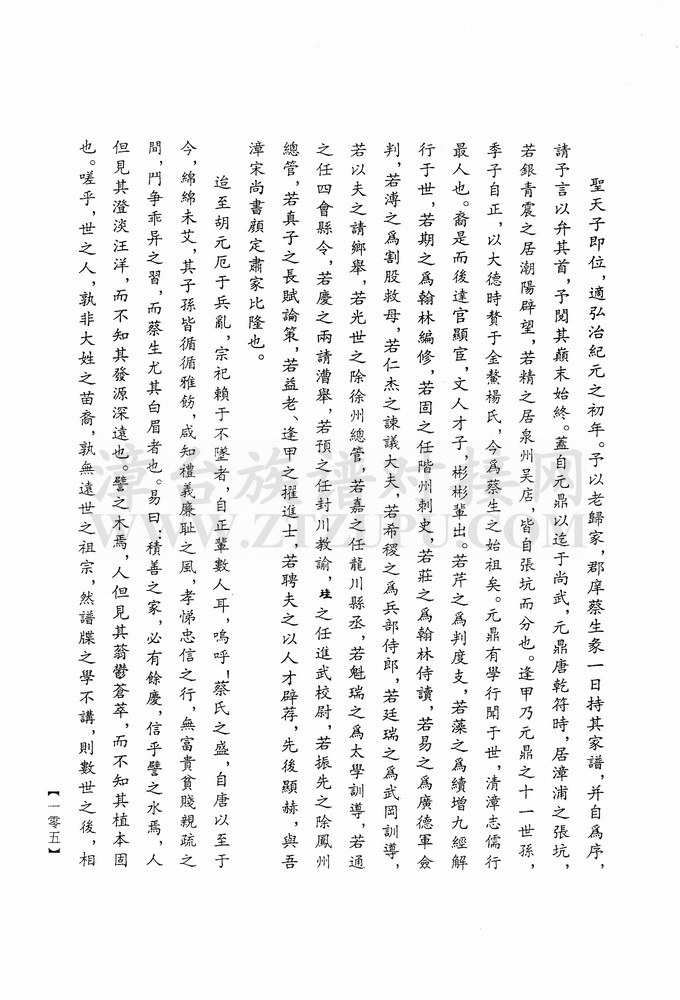 聖天子即位，適弘治紀元之初年。予以老歸家，郡庠蔡生彖一日持其家譜，并自爲序，
請予言以弁其首，予閱其巔末始終。蓋自元鼎以迄于尚武，元鼎唐乾符時，居漳浦之張坑，
若銀青震之居潮陽辟望，若精之居泉州吴店，皆自張坑而分也。逢甲乃元鼎之十一世孫，
季子自正，以大德時贅于金鰲楊氏，今爲蔡生之始祖矣。元鼎有學行聞于世，清漳志儒行
最人也。裔是而後達官顯宦，文人才子，彬彬輩出。若芹之爲判度支，若藻之爲續增九經解
行于世，若期之爲翰林編修，若固之任階州刺史，若莊之爲翰林侍讀，若易之爲廣德軍僉
判，若漙之爲割股救母，若仁杰之諫議大夫，若希稷之爲兵部侍郎，若廷瑞之爲武岡訓導，
若以夫之請鄉舉，若光世之除徐州總管，若嘉之任龍川縣丞，若魁瑞之爲太學訓導，若通
之任四會縣令，若慶之兩請漕舉，若預之任封川教諭，珪之任進武校尉，若振先之除鳳州
總管，若真子之長賦論策，若益老、逢甲之擢進士，若聘夫之以人才辟荐，先後顯赫，與吾
漳宋尚書顔定肅家比隆也。
迨至胡元厄于兵亂，宗祀賴于不墜者，自正輩數人耳，嗚呼！蔡氏之盛，自唐以至于
今，綿綿未艾，其子孫皆循循雅飭，咸知禮義廉耻之風，孝悌忠信之行，無富貴貧賤親疏之
間，鬥争乖异之習，而蔡生尤其白眉者也。易曰：積善之家，必有餘慶，信乎譬之水焉，人
但見其澄淡汪洋，而不知其發源深遠也。譬之木焉，人但見其蓊鬱蒼萃，而不知其植本固
也。嗟乎，世之人，孰非大姓之苗裔，孰無遠世之祖宗，然譜牒之學不講，則數世之後，相
【一零五】
漳台族譜对接网
WWW.ZTZUPU.COM